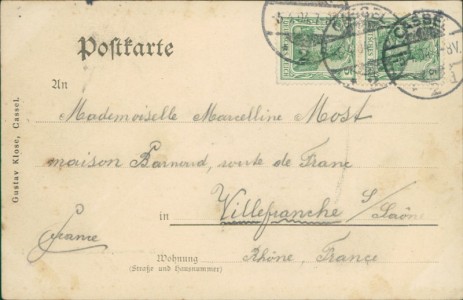 Postkarte
CASSEL
CASSEL
An
Mademoiselle Marcelline Most
maison Barnoud, route de Franc
in Villefranche s/Saône
France
Wohnung
(Straße und Hausnummer)
Rhône, France
Gustav Klose, Cassel.